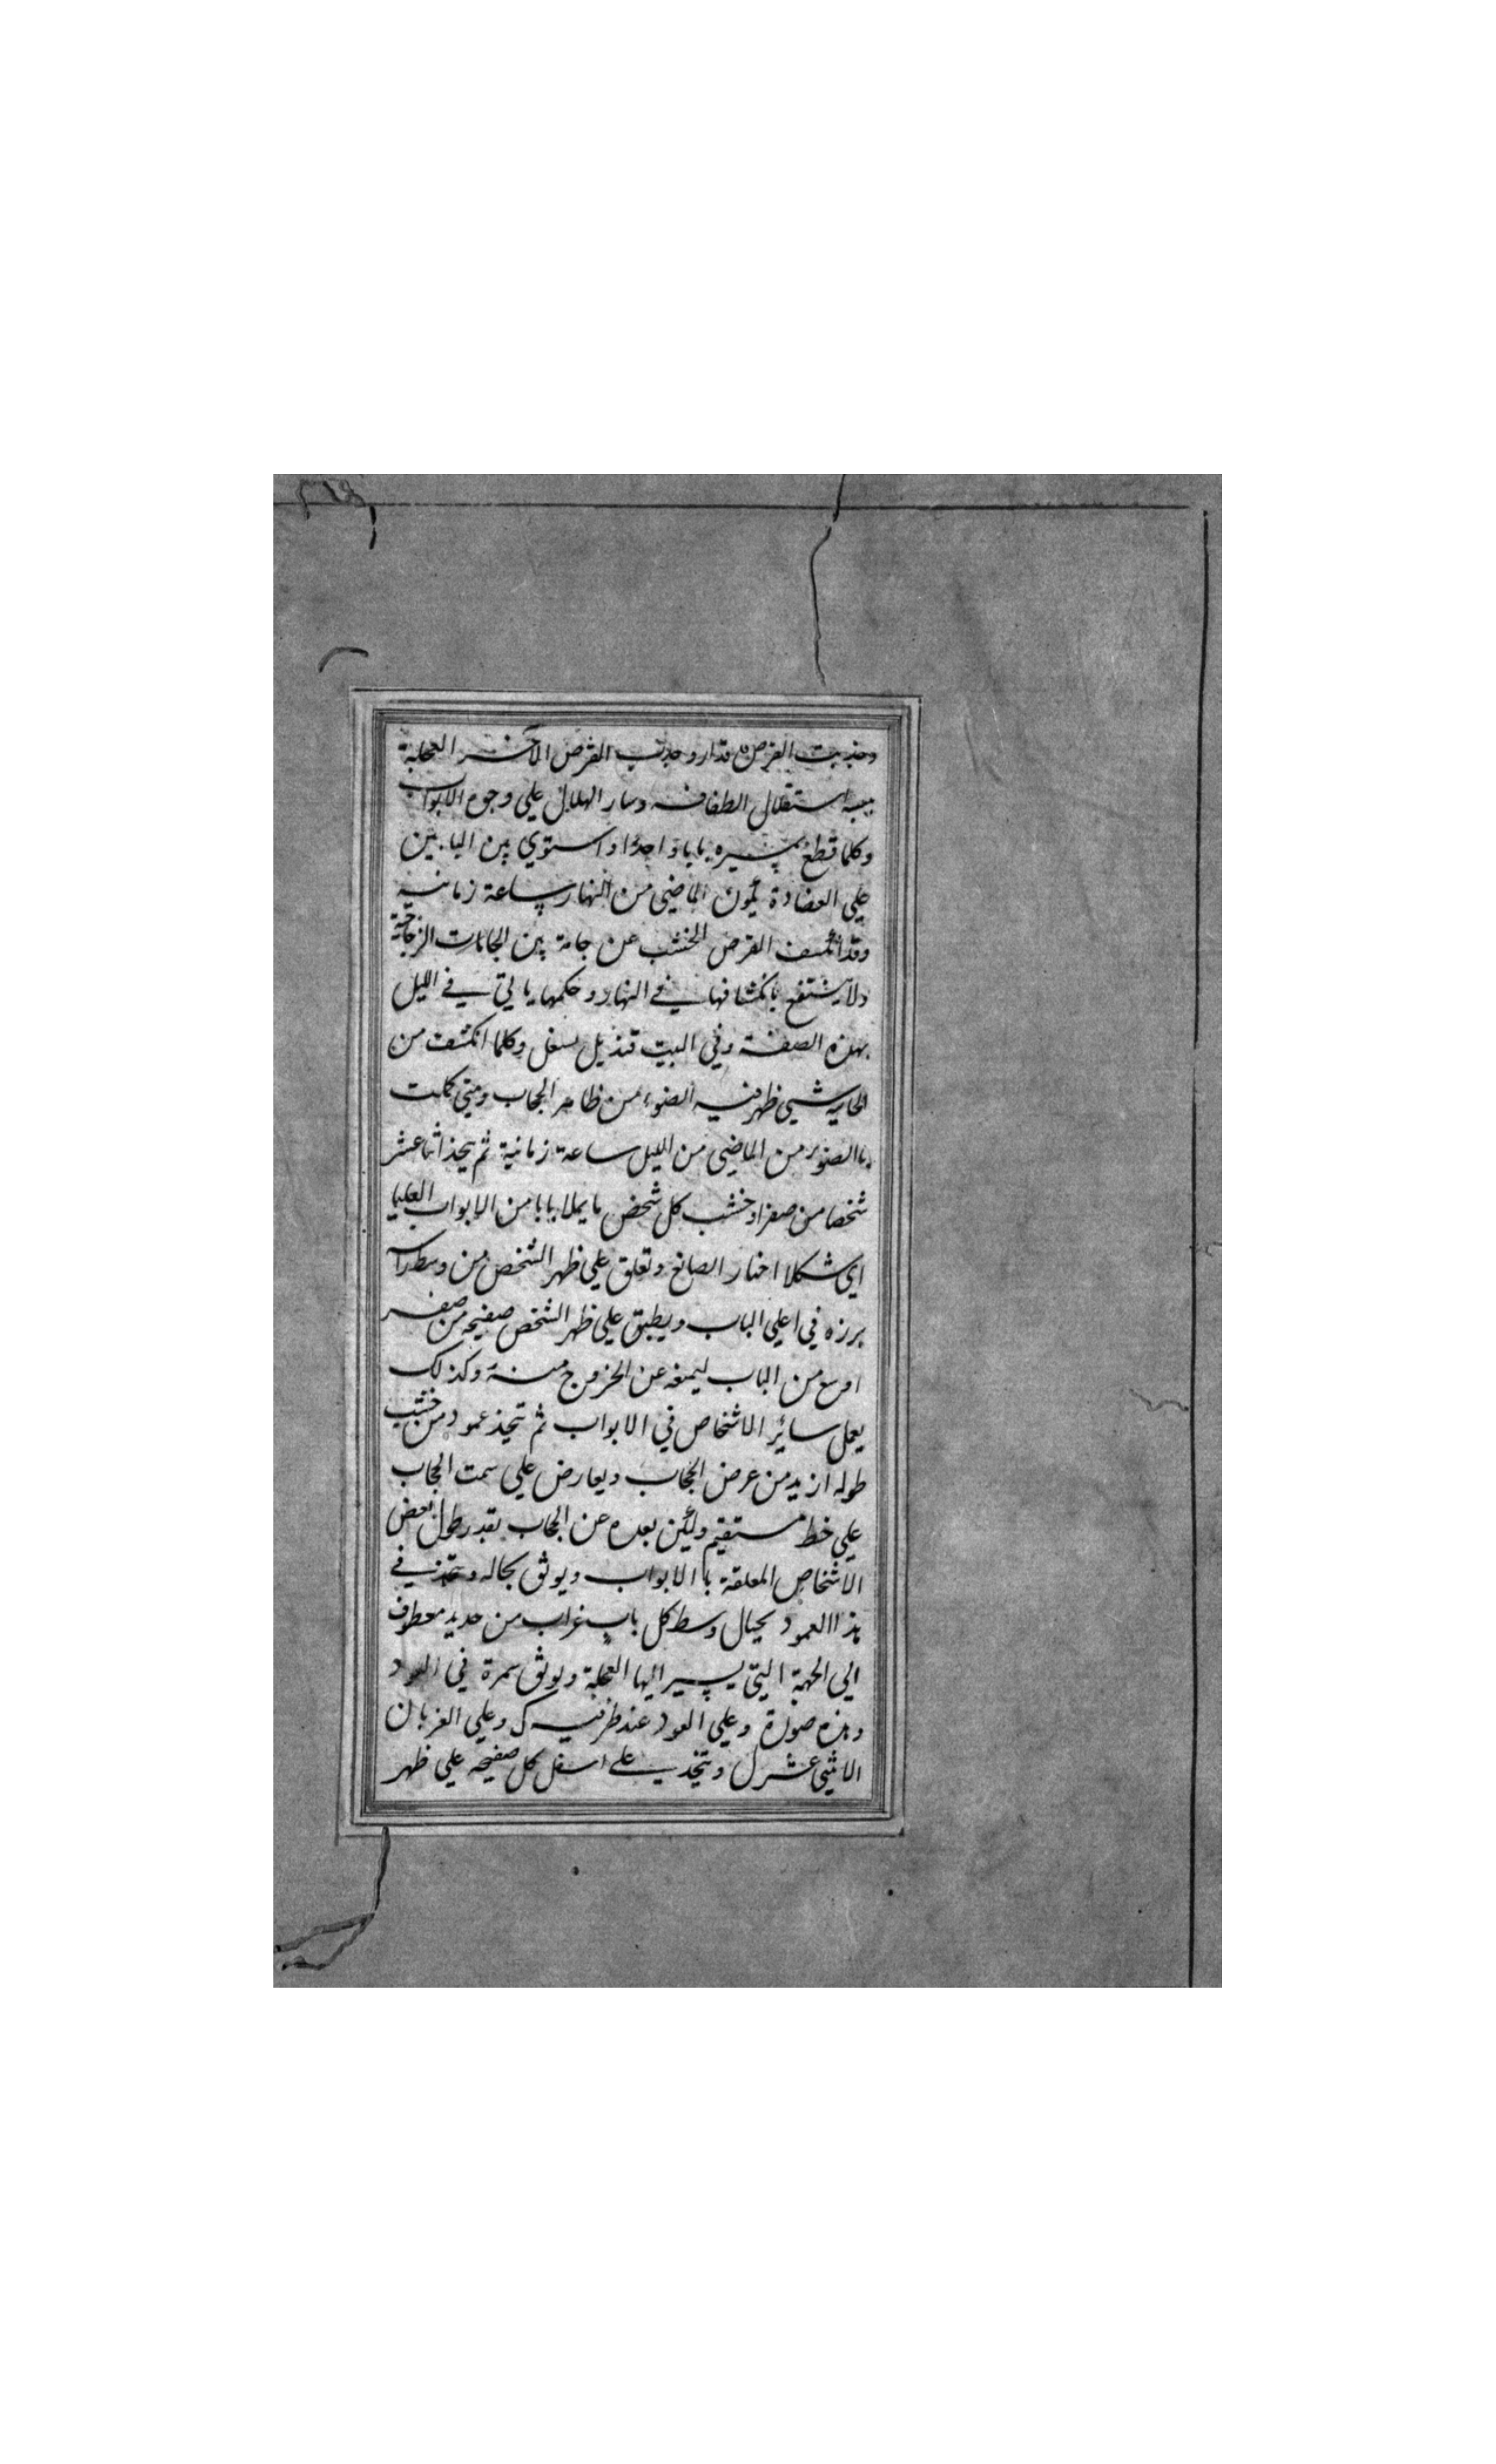 وجذبت القرص فدار وجذب القرص الآخر العجلة
استقلال الطفافه وسار الهلال علي وجوه الابواب
وكلما قطع بمسيره بابا واحدا واستوي بين البابين
علي العضادة يكون الماضي من النهار ساعة زمانية
وقد انكشف القرص الخشب عن جامة بين الجامات الزجاجية
ولا ينتفع بانكشافها في النهار وحكمها ياتي في الليل
بهذه الصفة وفي البيت قنديل يشعل وكلما انكشف من
الجامة شيي ظهر فيه الضوء من ظاهر الحجاب ومتي كملت
بالضوء من الماضي من الليل ساعة زمانية ثم يتخذ اثنا عشر
شخصا من صفر او خشب كل شخص ما يملا بابا من الابواب العليا
اي شكلا اختار الصانع وتعلق علي ظهر الشخص من وسط راسه
برزه في اعلي الباب ويطبق علي ظهر الشخص صفيحه من صفر
اوسع من الباب ليمنعه عن الخروج منه وكذلك
يعمل سائر الاشخاص في الابواب ثم تتخذ عمود من خشب
طوله ازيد من عرض الحجاب ويعارض علي سمت الحجاب
علي خط مستقيم وليكن بعده عن الحجاب بقدر طول بعض
الاشخاص المعلقة باالابواب ويوثق بحاله ويتخذ في
هذا العمود بحيال وسط كل باب غراب من حديد معطوف
الي الجهة التي يسير اليها العجلة ويوثق سمرة في العود
وهذه صورة وعلي العود عند طرفيه ك وعلي الغربان
الاثني عشر ل ويتخذ علي اسفل كل صفيحه علي ظهر